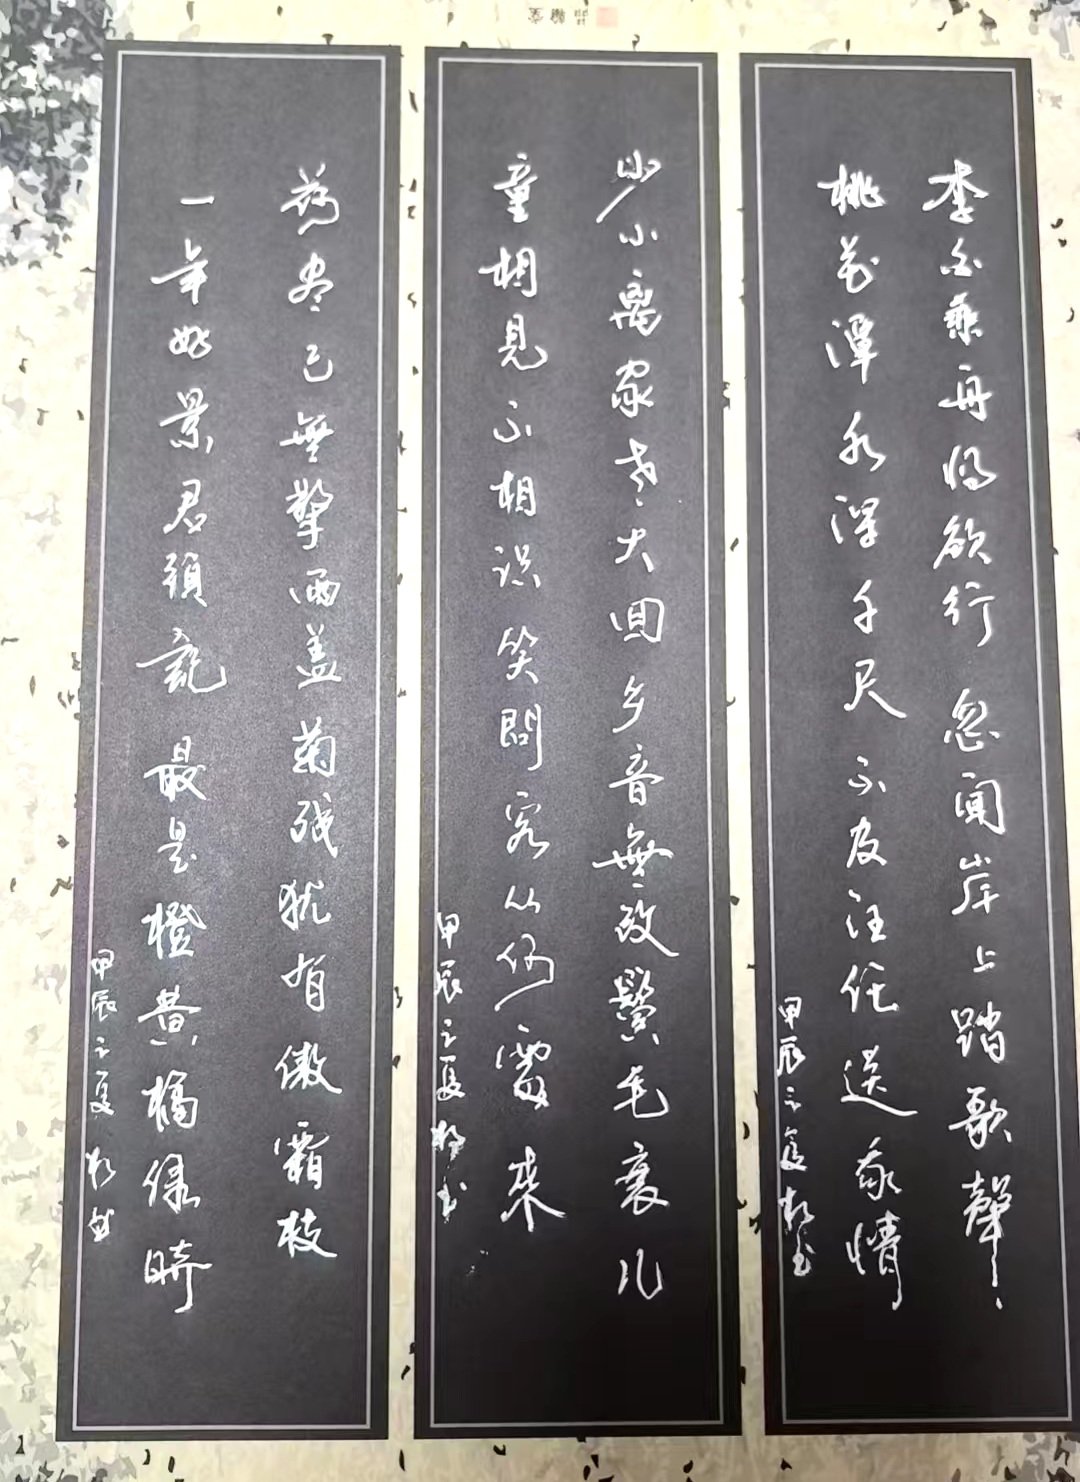 李白乘舟将欲行忽闻岸上踏歌聲
桃花潭水深千尺不及汪伦送我情
甲辰之夏
少小离家老大回乡音無改鬓毛衰儿
童相見不相识笑問客从何處来
甲辰之夏
荷尽已無擎雨盖菊残犹有傲霜枝
一年好景君須記最是橙黄橘绿時
甲辰之夏